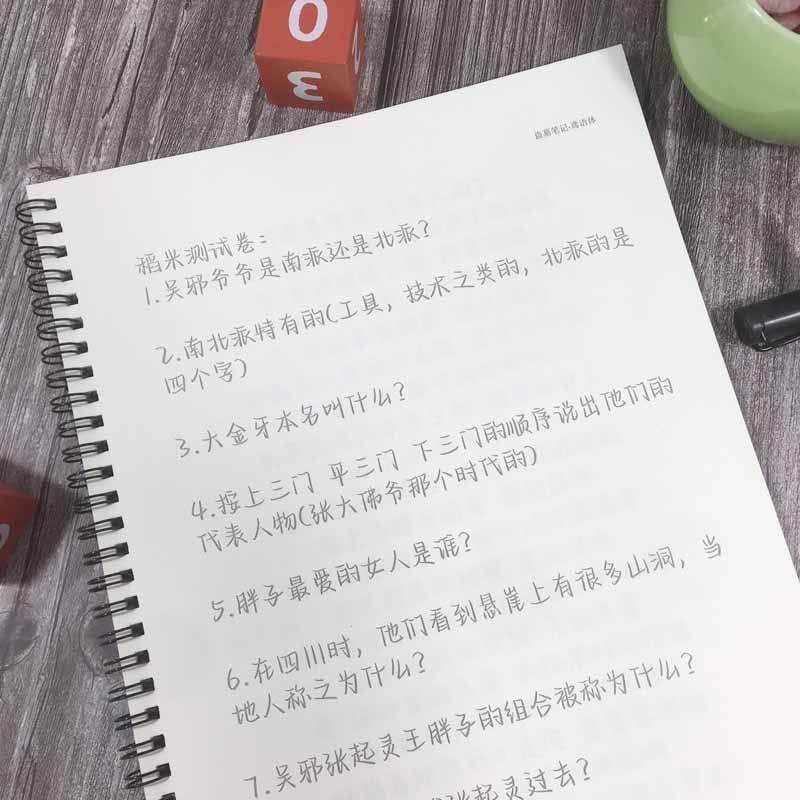 0
3
盗墓笔记·鸢语体
稻米测试卷：
1.吴邪爷爷是南派还是北派？
2.南北派特有的(工具，技术之类的，北派的是
四个字)
3.大金牙本名叫什么？
4.按上三门 平三门 下三门的顺序说出他们的
代表人物(张大佛爷那个时代的)
5.胖子最爱的女人是谁？
6.在四川时，他们看到悬崖上有很多山洞，当
地人称之为什么？
7.吴邪张起灵王胖子的组合被称为什么？
张起灵过去？